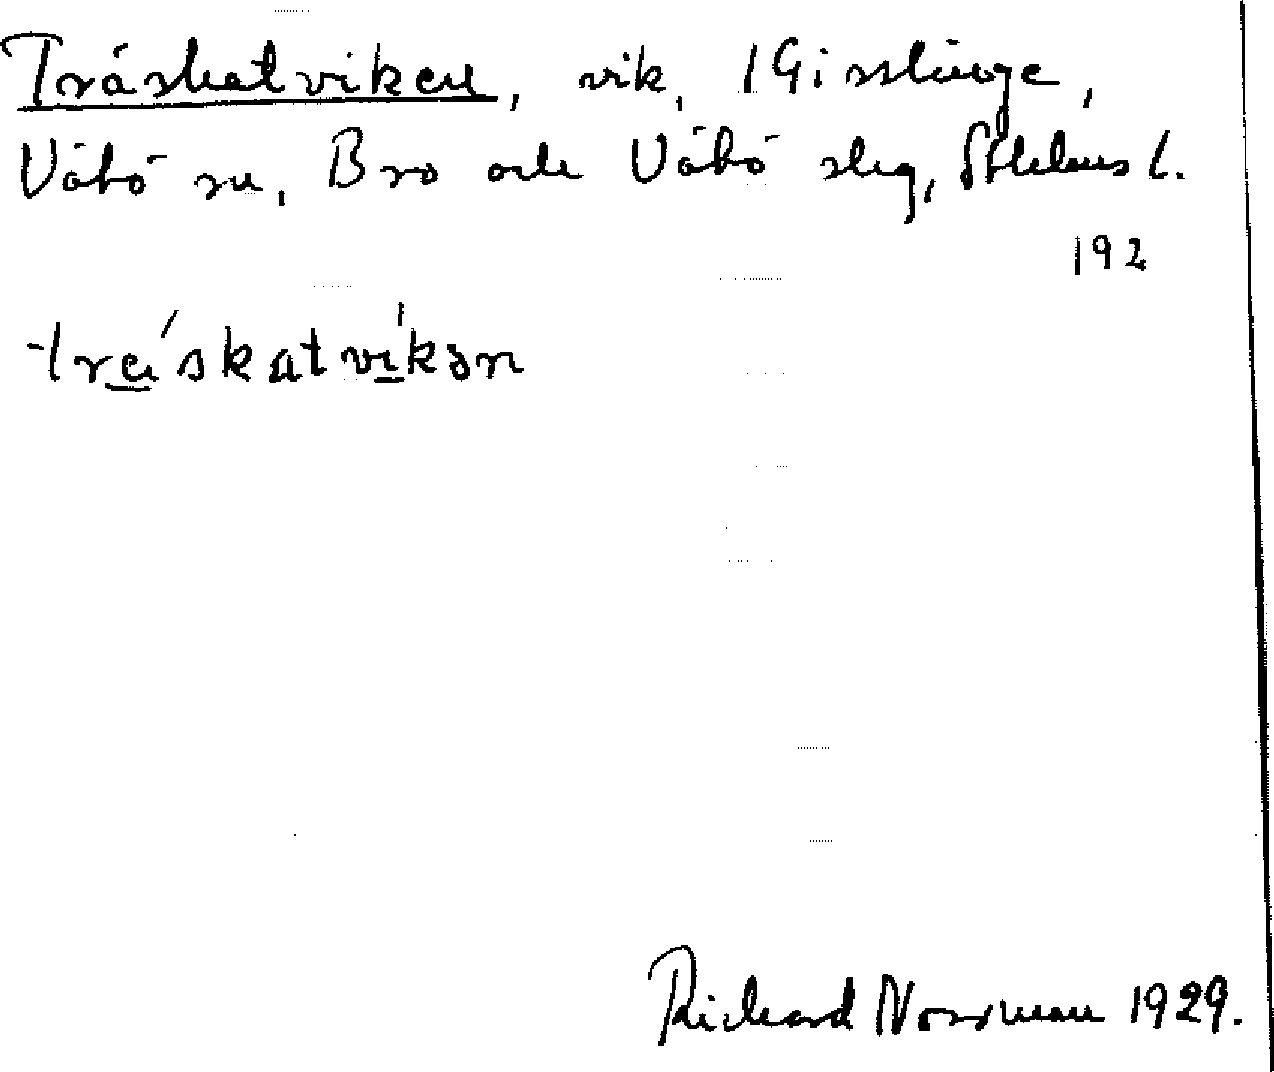 Träskatviken, vik, 1 Gisslinge,
Vätö sn, Bro och Vätö slg, Sthlms l.
192
träskatvikən
Richard Norrman 1929.